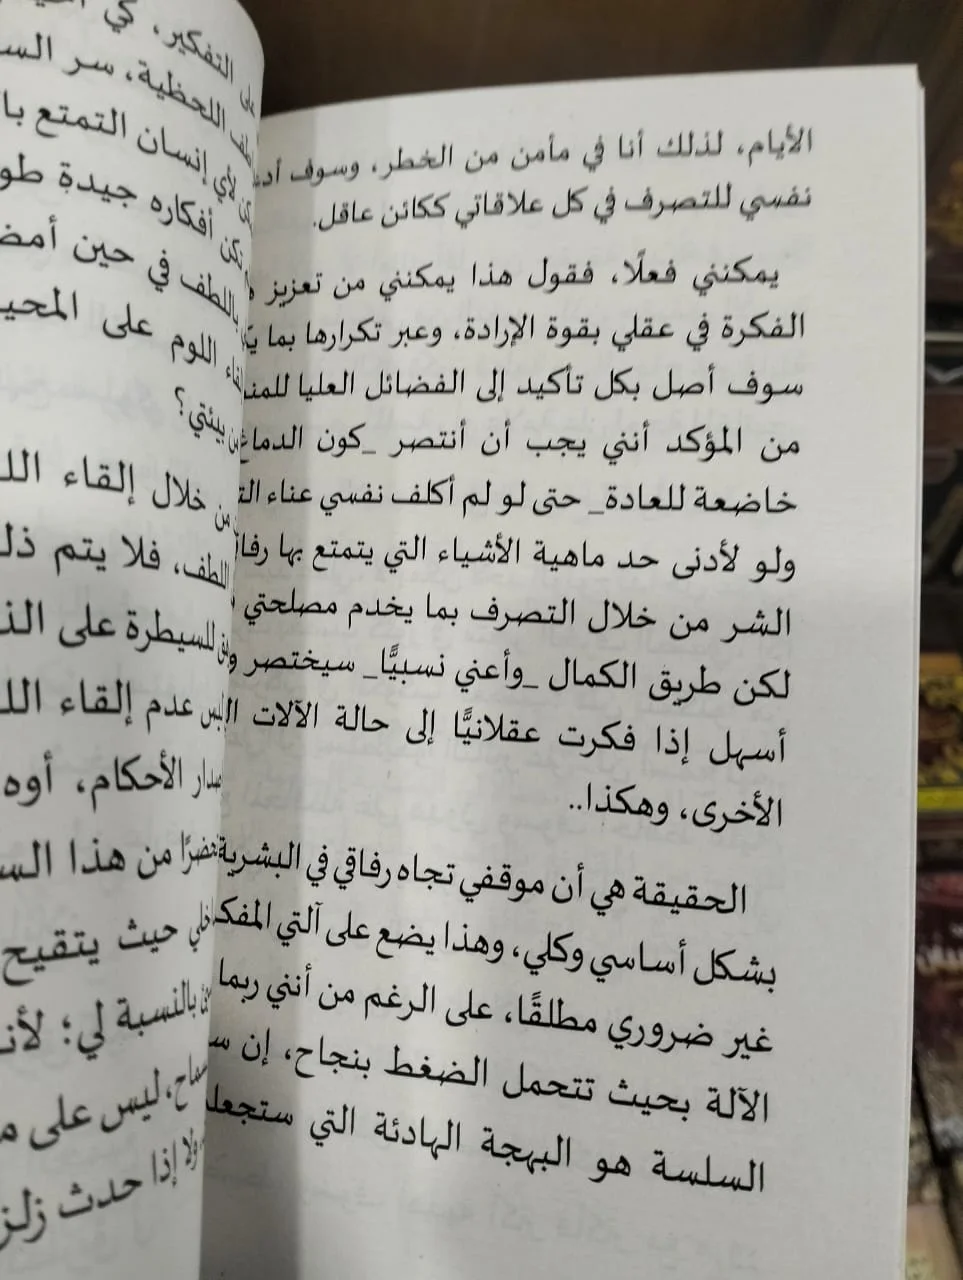 الأيام، لذلك أنا في مأمن من الخطر، وسوف
نفسي للتصرف في كل علاقاتي ككائن عاقل.
يمكنني فعلًا، فقول هذا يمكنني من تعزيز
الفكرة في عقلي بقوة الإرادة، وعبر تكرارها بما
سوف أصل بكل تأكيد إلى الفضائل العليا
من المؤكد أنني يجب أن أنتصر _كون الدماغ
خاضعة للعادة_ حتى لو لم أكلف نفسي عناء
ولو لأدنى حد ماهية الأشياء التي يتمتع بها
الشر من خلال التصرف بما يخدم مصلحتي
لكن طريق الكمال _وأعني نسبيًّا_ سيختصر
أسهل إذا فكرت عقلانيًّا إلى حالة الآلات
الأخرى، وهكذا..
الحقيقة هي أن موقفي تجاه رفاقي في البشرية
بشكل أساسي وكلي، وهذا يضع على آلتي
غير ضروري مطلقًا، على الرغم من أنني ربما
الآلة بحيث تتحمل الضغط بنجاح، إن
السلسة هو البهجة الهادئة التي
على التفكير،
اللحظية، سر
لأي إنسان التمتع
أفكاره جيدة
باللطف في حين
اللوم على
بيئتي؟
من خلال إلقاء
اللطف، فلا يتم
للسيطرة على
عدم إلقاء
الأحكام، أوه
من هذا
حيث يتقيح
بالنسبة لي؛
ليس على
إذا حدث